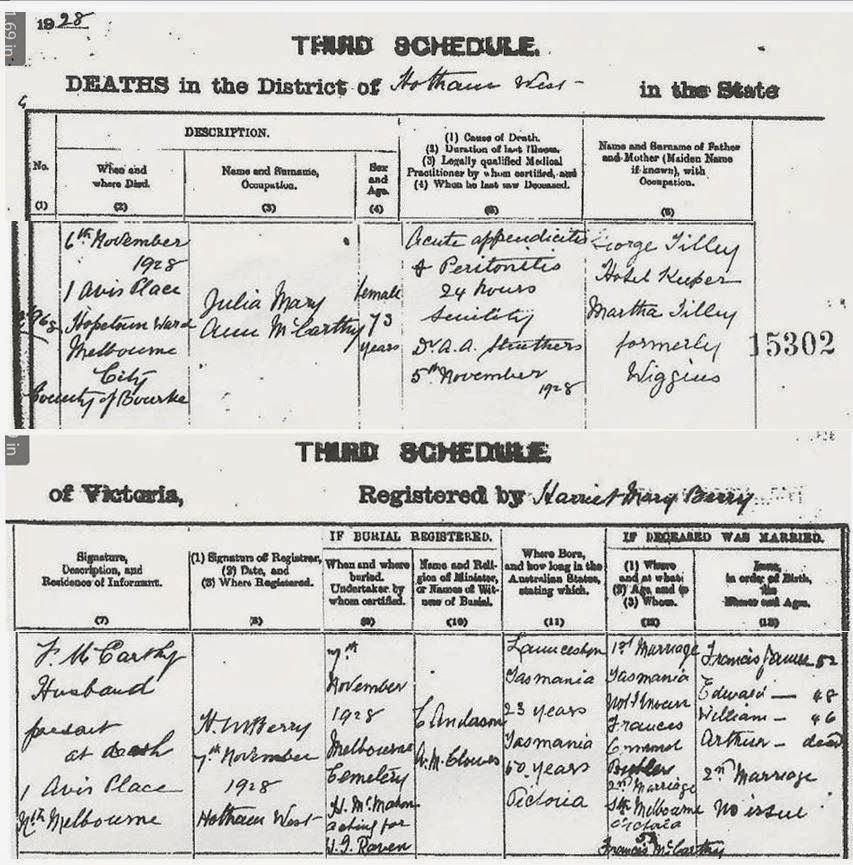 1928
THIRD SCHEDULE.
DEATHS in the District of Hotham West in the State
DESCRIPTION.
No.
(1)
When and
where Died.
(2)
Name and Surname,
Occupation.
(3)
Sex
and
Age.
(4)
(1) Cause of Death.
(2) Duration of last Illness.
(3) Legally qualified Medical
Practitioner by whom certified, and
(4) When he last saw Deceased.
(5)
Name and Surname of Father
and Mother (Maiden Name
if known), with
Occupation.
(6)
6th November
1928
1 Avis Place
Hopetoun Ward
Melbourne
City
County of Bourke
Julia Mary
Ann McCarthy
female
73
years
Acute appendicitis
& Peritonitis
24 hours
Senility
Dr A. A. Struthers
5th November
1928
George Tilley
Hotel Keeper
Martha Tilley
formerly
Wiggins
15302
THIRD SCHEDULE.
of Victoria, Registered by Harriet Mary Berry
Signature,
Description, and
Residence of Informant.
(7)
(1) Signature of Registrar,
(2) Date, and
(3) Where Registered.
(8)
IF BURIAL REGISTERED.
When and where
buried.
Undertaker by
whom certified.
(9)
Name and Reli-
gion of Minister,
or Names of Wit-
ness of Burial.
(10)
Where Born,
and how long in the
Australian States,
stating which.
(11)
IF DECEASED WAS MARRIED.
(1) Where
and at what
(2) Age, and to
(3) Whom.
(12)
Issue,
in order of Birth,
the
Names and Ages.
(13)
F. McCarthy
Husband
present
at death
1 Avis Place
Nth Melbourne
H. M Berry
7th November
1928
Hotham West
7th
November
1928
Melbourne
Cemetery
H. McMahon
acting for
W. G. Raven
C Anderson
A. M. Clowes
Launceston
Tasmania
23 years
Tasmania
50 years
Victoria
1st Marriage
Tasmania
Not known
Frances
Butler
2nd Marriage
Sth Melbourne
Victoria
Francis McCarthy
Francis James 52
Edward — 48
William — 46
Arthur — dead
2nd Marriage
No issue